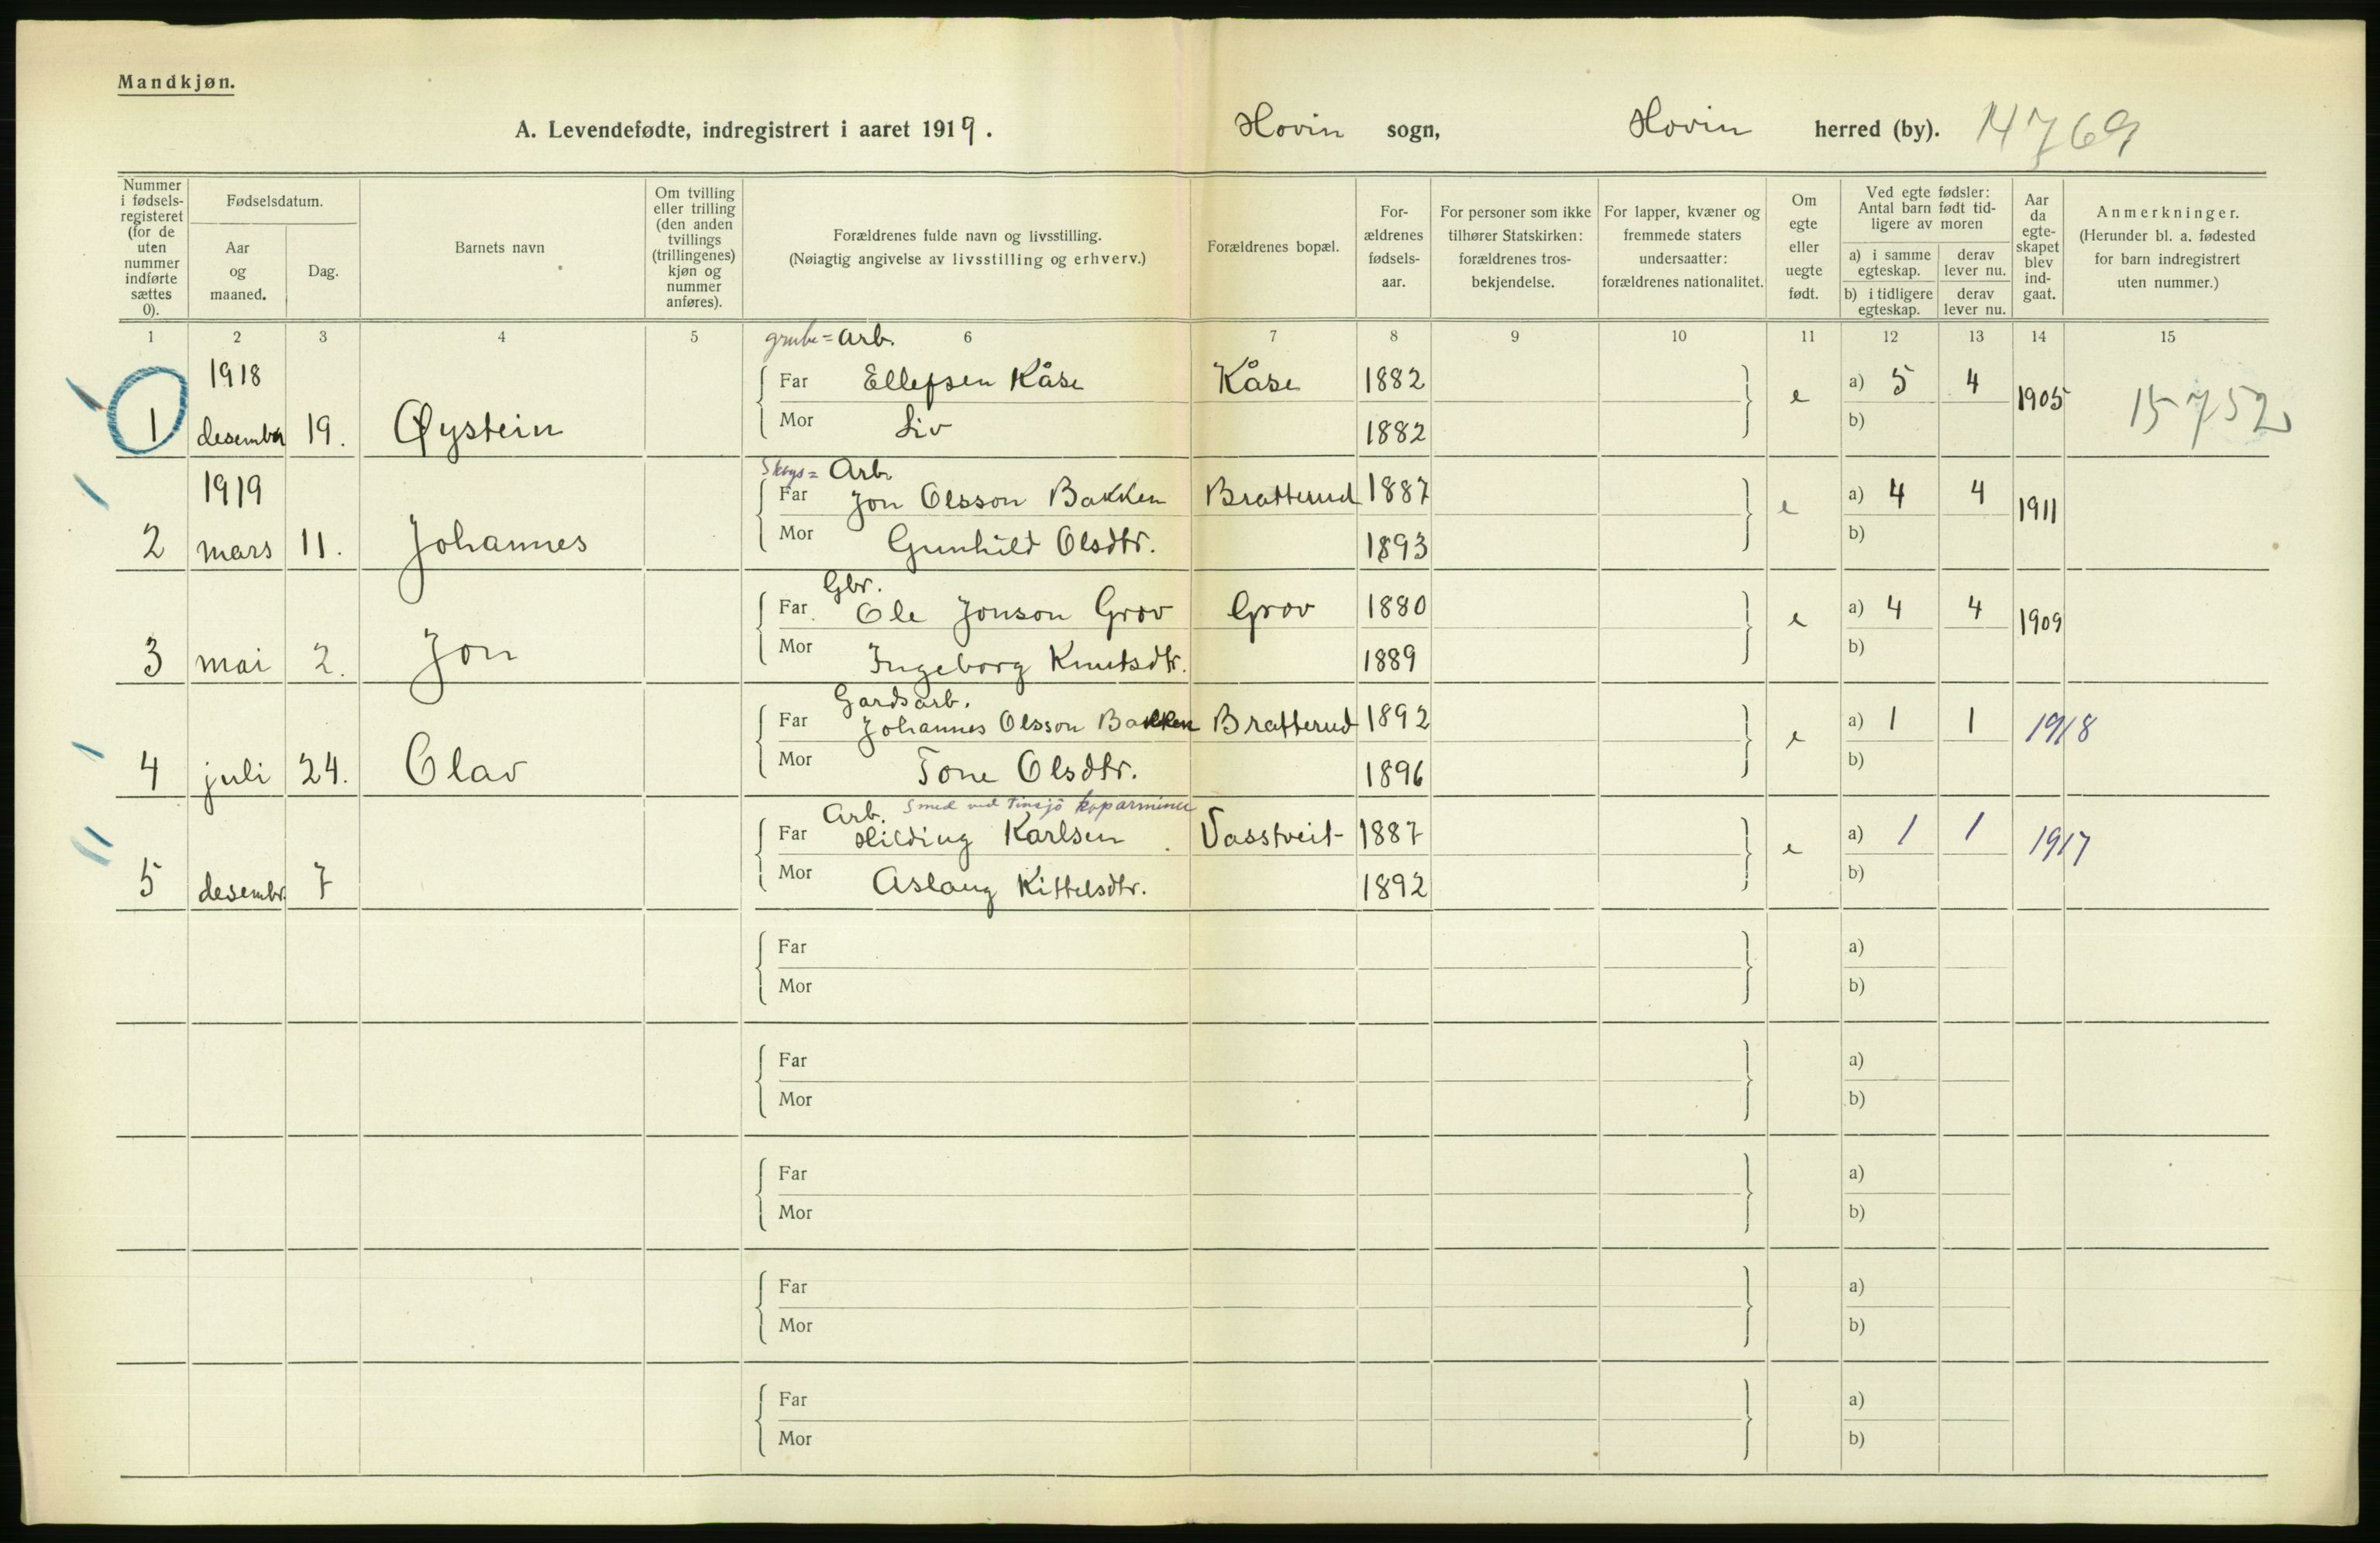 Mandkjøn.
A. Levendefødte, indregistrert i aaret 1919. Hovin sogn, Hovin herred (by). 14769
Nummer i fødsels-registeret (for de uten nummer indførte sættes 0).
Fødselsdatum.
Aar og maaned.
Dag.
Barnets navn
Om tvilling eller trilling (den anden tvillings (trillingenes) kjøn og nummer anføres).
Forældrenes fulde navn og livsstilling.
(Nøiagtig angivelse av livsstilling og erhverv.)
Forældrenes bopæl.
For-ældrenes fødsels-aar.
For personer som ikke tilhører Statskirken: forældrenes tros-bekjendelse.
For lapper, kvæner og fremmede staters undersaatter: forældrenes nationalitet.
Om egte eller uegte født.
Ved egte fødsler: Antal barn født tid-ligere av moren
a) i samme egteskap. derav lever nu.
b) i tidligere egteskap. derav lever nu.
Aar da egte-skapet blev ind-gaat.
Anmerkninger.
(Herunder bl. a. fødested for barn indregistrert uten nummer.)
1 2 3 4 5 6 7 8 9 10 11 12 13 14 15
grube= Arb.
1918 Far Ellefsen Kåse Kåse 1882 e a) 5 4 1905 15752
1 desember 19. Øystein Mor Liv 1882 b)
Skogs= Arb.
1919 Far Jon Olsson Bakken Bratterud 1887 e a) 4 4 1911
2 mars 11. Johannes Mor Gunhild Olsdtr. 1893 b)
Gbr.
Far Ole Jonson Grov Grov 1880 e a) 4 4 1909
3 mai 2. Jon Mor Ingeborg Knutsdtr. 1889 b)
Gardsarb.
Far Johannes Olsson Bakken Bratterud 1892 e a) 1 1 1918
4 juli 24. Olav Mor Tone Olsdtr. 1896 b)
Arb. Smed ved Tinsjö koparminer
Far Hilding Karlsen Vasstveit 1887 e a) 1 1 1917
5 desembr. 7 Mor Aslaug Kittelsdtr. 1892 b)
Far a)
Mor b)
Far a)
Mor b)
Far a)
Mor b)
Far a)
Mor b)
Far a)
Mor b)